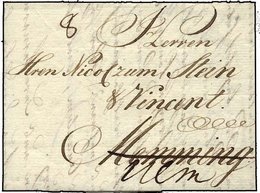 8
Herren
Hren Nicol zum Stein
& Vincent.
Memming
Ulm